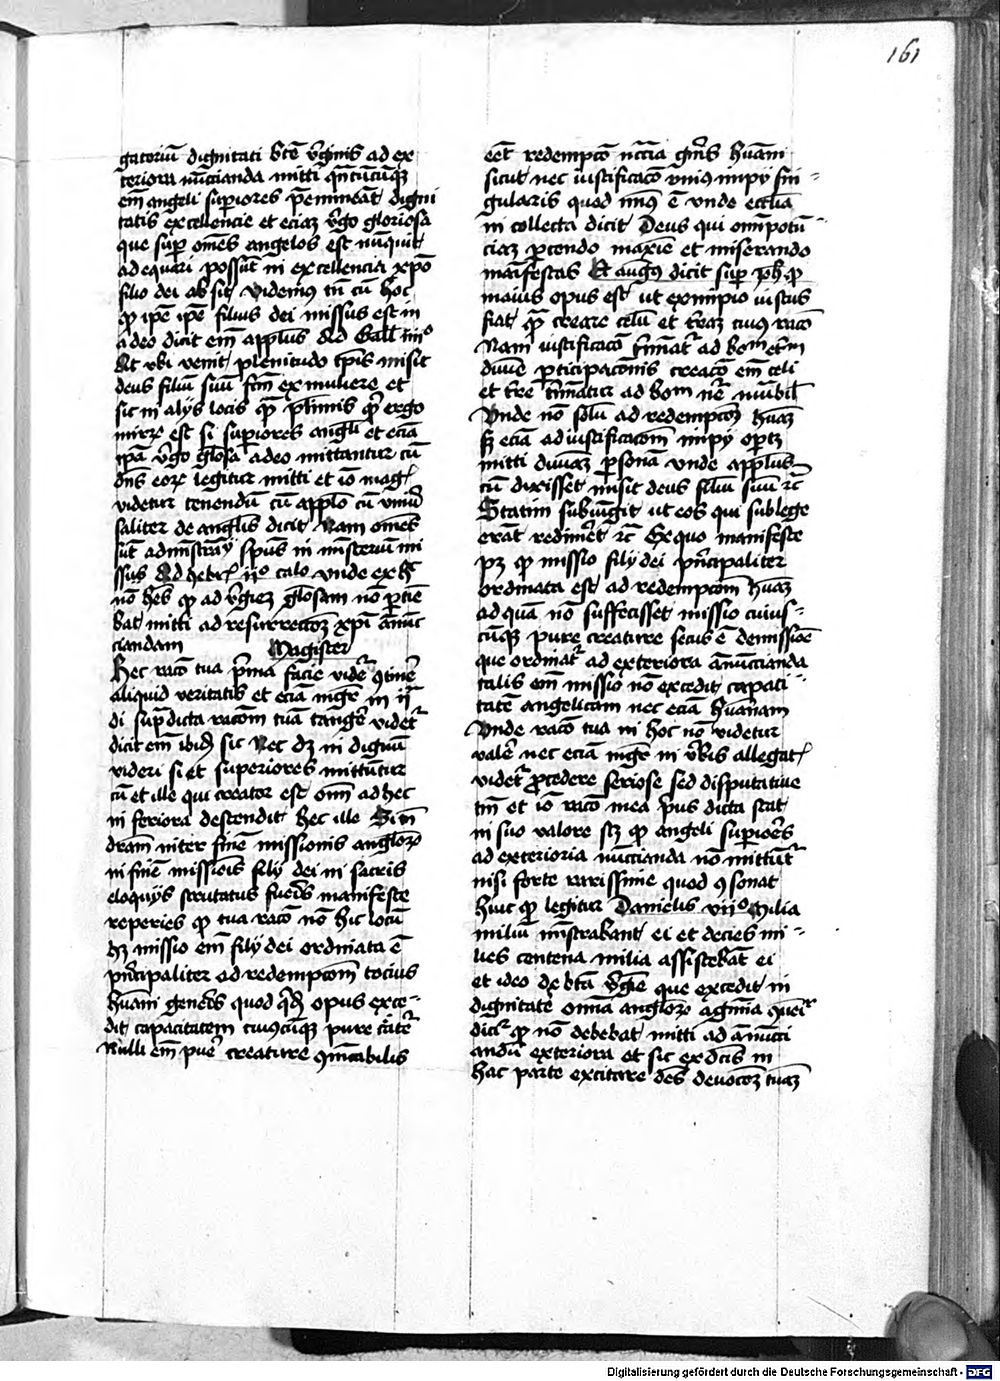 161
gatoriū dignitati btē v̄ginis ad ex
teriora nūccianda mitti qn̄tūcūqꝫ
em̄ angeli suꝑiores p̄emineāt digni
tatis excellencie et eciaꝫ v̄go gloriosa
que suꝑ om̄es angelos est nūquit
adequari possūt in excellencia xp̄o
filio dei absit videmꝰ tn̄ cū hoc
ꝙ ip̄e ip̄e filius dei missus est in
adeo dicit em̄ appl̄us Ad Gall̄ iiijᵒ
At vbi venit plenitudo tp̄is misit
deus filiū suū fc̄m ex muliere et
sic in alijs locis qꝫ pl̄imis qͥ ergo
mirꝫ est si suꝑiores angl̄i et eciā
ip̄a v̄go gl̄osa adeo mittantur cū
dn̄s eorꝫ legitur mitti et iō maḡ
videtur tenendū cū applo cū vniu̅
saliter de angl̄is dicit Nam om̄es
sūt administratorij sp̄us in mīsteriū mi
ssus Ad hebr̄ ijᵒ calo vnde ex hͨ
nō hēs ꝙ ad v̄gieꝫ gl̄osam nō ꝑtie
bat mitti ad resurrectōꝫ xp̄i ānūc
ciandam Magister
Hec racō tua p̄ma facie videt̄ ꝯtinē
aliquid veritatis et eciā mgr̄ in ij
di sup̄dicta racōm tuā tangē videt̄
dicit em̄ ibidꝫ sic Nec dꝫ in dignū
videri si et superiores mittūtur
cū et ille qui creator est om̄ ad hec
in feriora descendit hec ille Si n̄
dram inter finē missionis angloꝝ
in finē missiōis filij dei in sacris
eloquijs scrutatus fueris manifeste
reperies ꝙ tua racō nō hic locū
hꝫ missio em̄ filij dei ordinata ē
pn̄cipaliter ad redempcōm tocius
hūani genēis quod qd̄ opus exce-
dit capacitatem cuiuscūqꝫ pure c̄atē
Nulli em̄ pure creature ꝯm̄cabilis
eēt redempcō nc̄c̄ia gn̄is hūani
sicut nec iustificacō vniꝰ impij sin-
gularis quod minꝰ ē vnde eccl̄ia
in collecta dicit Deus qui om̄potn̄-
ciaꝫ ꝑcendo maxīe et miserando
manifestas Et augꝰ dicit suꝑ joh̄ ꝙ
maius opus est ut ex impio iustus
fiat qꝫ creare celū et t̄raꝫ cuiꝰ racō
Nam iustificacō t̄minat̄ ad bonū et̄nū
diuīe ꝑticipacōnis creacō em̄ celi
et t̄re t̄minatur ad bonū nr̄e mutabil̄
Vnde nō solū ad redempcōꝫ hūaꝫ
sꝫ eciā ad iustificacōm impij oportꝫ
mitti diuiāꝫ ꝑsonā vnde appl̄us
cū dixisset misit deus filiū suū ꝛc̄
Statim subiūgit ut eos qui sub lege
erāt redimēt ꝛc̄ Ex quo manifeste
pꝫ ꝙ missio filij dei pn̄cipaliter
ordinata est ad redempcōm hūaꝫ
ad quā nō suffecisset missio cuius-
cūqꝫ pure creature secus ē de missiōe
que ordinat̄ ad exteriora ānūccianda
talis em̄ missio nō excedit capaci-
tatē angelicam nec eciā hūanam
Vnde racō tua in hoc nō videtur
valē nec eciā mgr̄ in v̄bis allegat̄
videt̄ ꝓcedere seriose sed disputatiue
tm̄ et iō racō mea p̄us dicta stat
in suo valore scꝫ ꝙ angeli suꝑiores
ad exterioria nūccianda nō mittūt̄
nisi forte rarissime quod ꝯsonat
huic ꝙ legitur Danielis vijᵒ Milia
miliū mīstrabant ei et decies mi-
lies centena milia assistebāt ei
et ideo de btā v̄gīe que excedit in
dignitatē om̄ia angloꝝ agmīa
dicit̄ ꝙ nō debebat mitti ad ānūcci
andū exteriora et sic ex dc̄is in
hac parte excitare dēs deuocōꝫ tuaꝫ
Digitalisierung gefördert durch die Deutsche Forschungsgemeinschaft - DFG